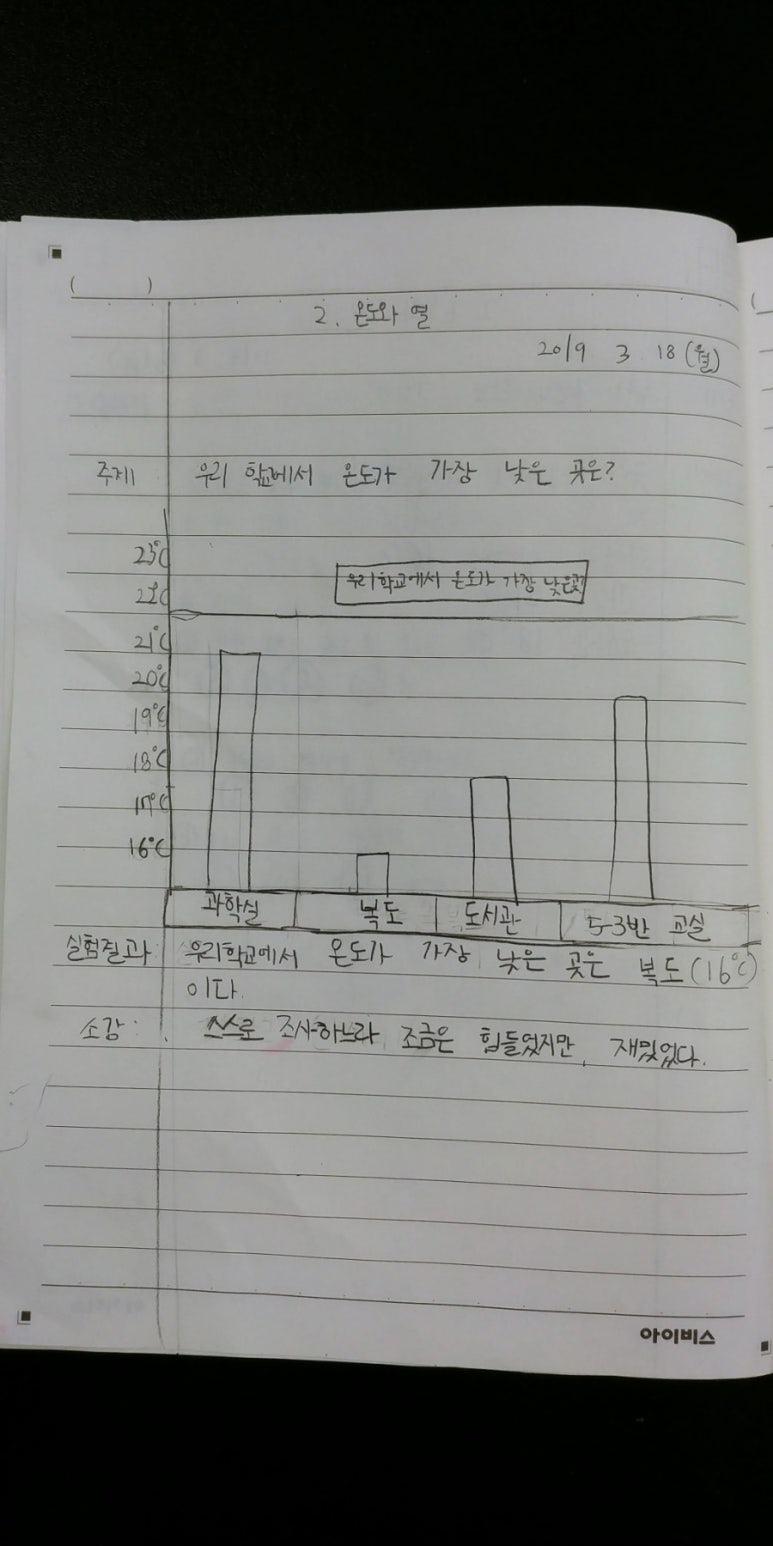 (          )
2. 온도와 열
2019 3 18 (월)
주제 우리 학교에서 온도가 가장 낮은 곳은?
23℃
우리학교에서 온도가 가장 낮은곳
22℃
21℃
20℃
19℃
18℃
17℃
16℃
과학실 복도 도서관 5-3반 교실
실험결과 우리학교에서 온도가 가장 낮은 곳은 복도(16℃)
이다.
소감: 스스로 조사하느라 조금은 힘들었지만, 재밌었다.
아이비스